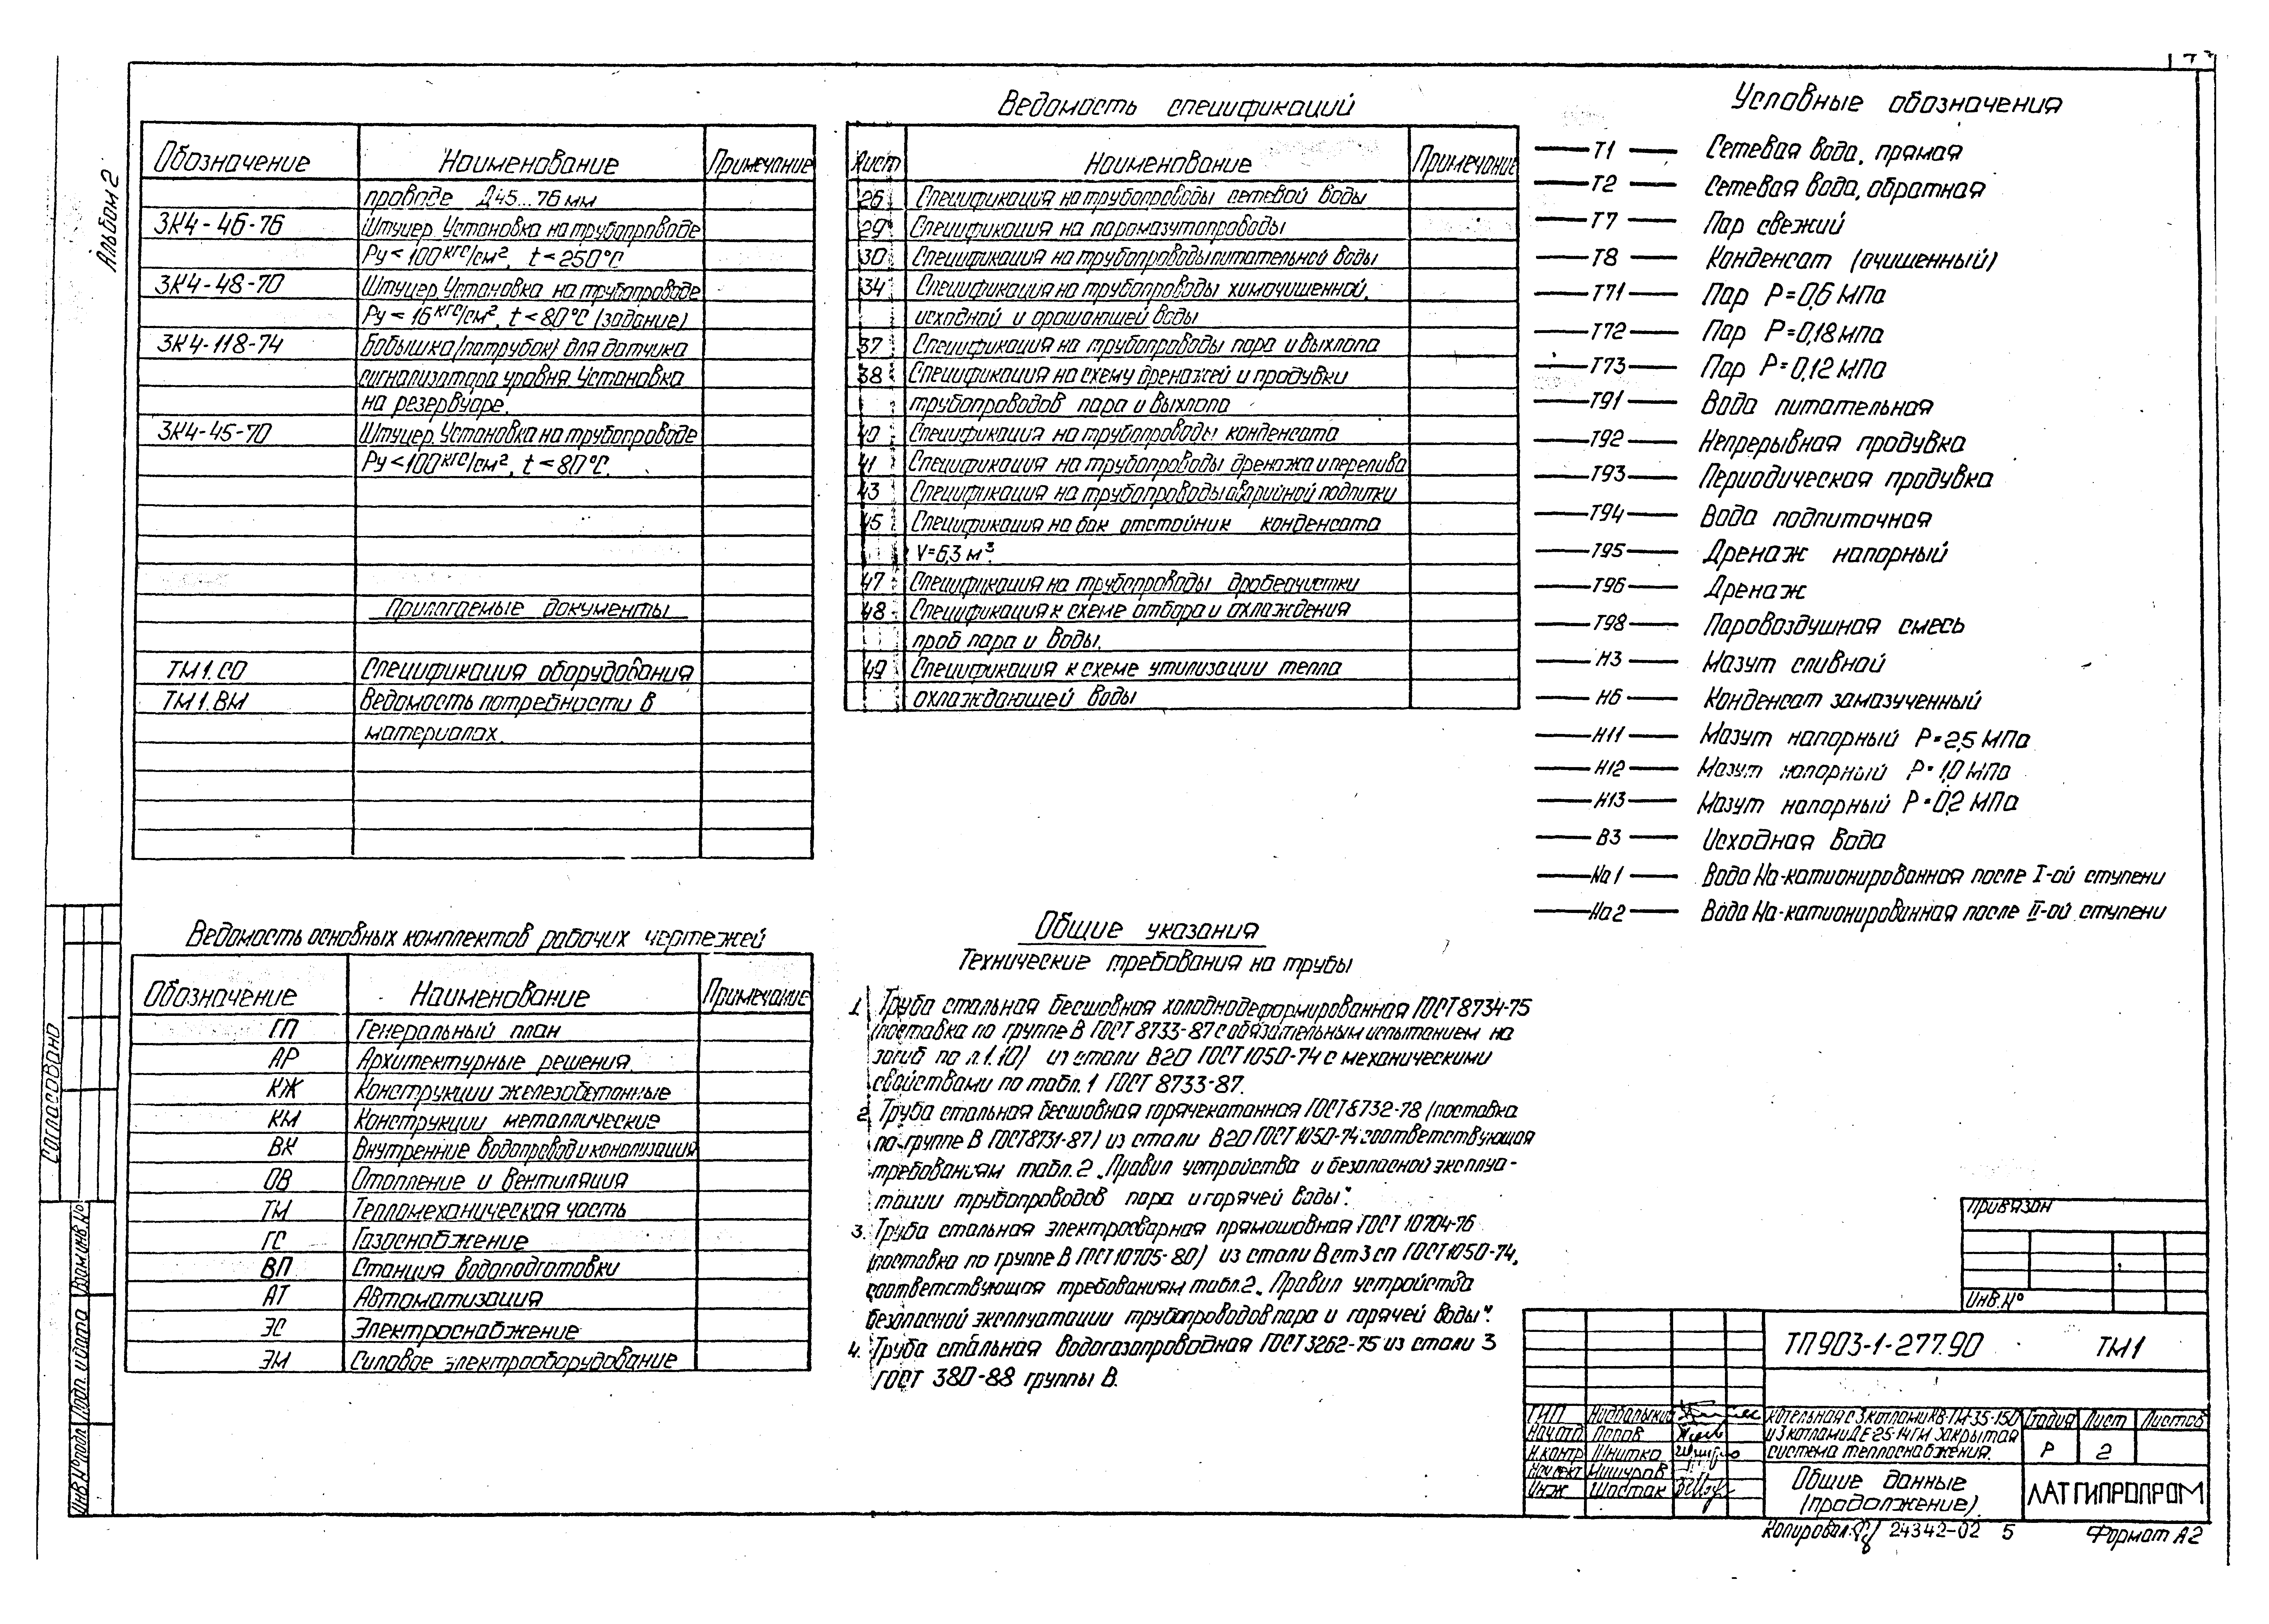 Альбом 2
Обозначение Наименование Примечание
проводе Д45...76 мм
ЗК4-46-76 Штуцер. Установка на трубопроводе
Ру<100 кгс/см², t<250°С
ЗК4-48-70 Штуцер. Установка на трубопроводе
Ру<16 кгс/см², t<80°С (задание)
ЗК4-118-74 Бобышка (патрубок) для датчика
сигнализатора уровня. Установка
на резервуаре.
ЗК4-45-70 Штуцер. Установка на трубопроводе
Ру<100 кгс/см², t<80°С.
Прилагаемые документы
ТМ1.СО Спецификация оборудования
ТМ1.ВМ Ведомость потребности в
материалах.
Ведомость основных комплектов рабочих чертежей
Обозначение Наименование Примечание
ГП Генеральный план
АР Архитектурные решения.
КЖ Конструкции железобетонные
КМ Конструкции металлические
ВК Внутренние водопровод и канализация
ОВ Отопление и вентиляция
ТМ Тепломеханическая часть
ГС Газоснабжение
ВП Станция водоподготовки
АТ Автоматизация
ЭС Электроснабжение
ЭМ Силовое электрооборудование
Ведомость спецификаций
Лист Наименование Примечание
26 Спецификация на трубопроводы сетевой воды
29 Спецификация на паромазутопроводы
30 Спецификация на трубопроводы питательной воды
34 Спецификация на трубопроводы химочищенной,
исходной и орошающей воды
37 Спецификация на трубопроводы пара и выхлопа
38 Спецификация на схему дренажей и продувки
трубопроводов пара и выхлопа
40 Спецификация на трубопроводы конденсата
41 Спецификация на трубопроводы дренажа и перелива
43 Спецификация на трубопроводы аварийной подпитки
45 Спецификация на бак отстойник конденсата
V=6,3 м³.
47 Спецификация на трубопроводы дробеочистки
48 Спецификация к схеме отбора и охлаждения
проб пара и воды.
49 Спецификация к схеме утилизации тепла
охлаждающей воды
Общие указания
Технические требования на трубы
1. Труба стальная бесшовная холоднодеформированная ГОСТ 8734-75
(поставка по группе В ГОСТ 8733-87 с обязательным испытанием на
загиб по п.1.10) из стали В20 ГОСТ 1050-74 с механическими
свойствами по табл. 1 ГОСТ 8733-87.
2. Труба стальная бесшовная горячекатанная ГОСТ 8732-78 (поставка
по группе В ГОСТ 8731-87) из стали В20 ГОСТ 1050-74 соответствующая
требованиям табл. 2 „Правил устройства и безопасной эксплуа-
тации трубопроводов пара и горячей воды".
3. Труба стальная электросварная прямошовная ГОСТ 10704-76
(поставка по группе В ГОСТ 10705-80) из стали Вст3сп ГОСТ 1050-74,
соответствующая требованиям табл. 2 „Правил устройства
безопасной эксплуатации трубопроводов пара и горячей воды".
4. Труба стальная водогазопроводная ГОСТ 3262-75 из стали 3
ГОСТ 380-88 группы В.
Условные обозначения
Т1 Сетевая вода, прямая
Т2 Сетевая вода, обратная
Т7 Пар свежий
Т8 Конденсат (очищенный)
Т71 Пар Р=0,6 МПа
Т72 Пар Р=0,18 МПа
Т73 Пар Р=0,12 МПа
Т91 Вода питательная
Т92 Непрерывная продувка
Т93 Периодическая продувка
Т94 Вода подпиточная
Т95 Дренаж напорный
Т96 Дренаж
Т98 Паровоздушная смесь
Н3 Мазут сливной
Н6 Конденсат замазученный
Н11 Мазут напорный Р=2,5 МПа
Н12 Мазут напорный Р=1,0 МПа
Н13 Мазут напорный Р=0,2 МПа
В3 Исходная вода
Na1 Вода Na-катионированная после I-ой ступени
Na2 Вода Na-катионированная после II-ой ступени
Согласовано
Взам.инв.№
Подп. и дата
Инв.№ подл.
Привязан
Инв.№
ТП 903-1-277.90 ТМ1
ГИП
Нач.отд Попов
Н.контр Шнитко
Мишуров
Инж Шостак
Котельная с 3 котлами КВ-ГМ-35-150
и 3 котлами ДЕ-25-14ГМ Закрытая
система теплоснабжения.
Стадия Лист Листов
Р 2
Общие данные
(продолжение).
ЛАТГИПРОПРОМ
Копировал: 24342-02 5 Формат А2